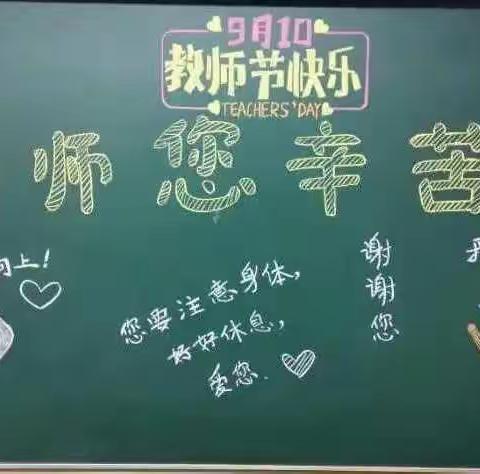 9月10
教师节快乐
TEACHERS'DAY
师您辛苦
向上!
您要注意身体,
好好休息,
爱您.
谢谢您